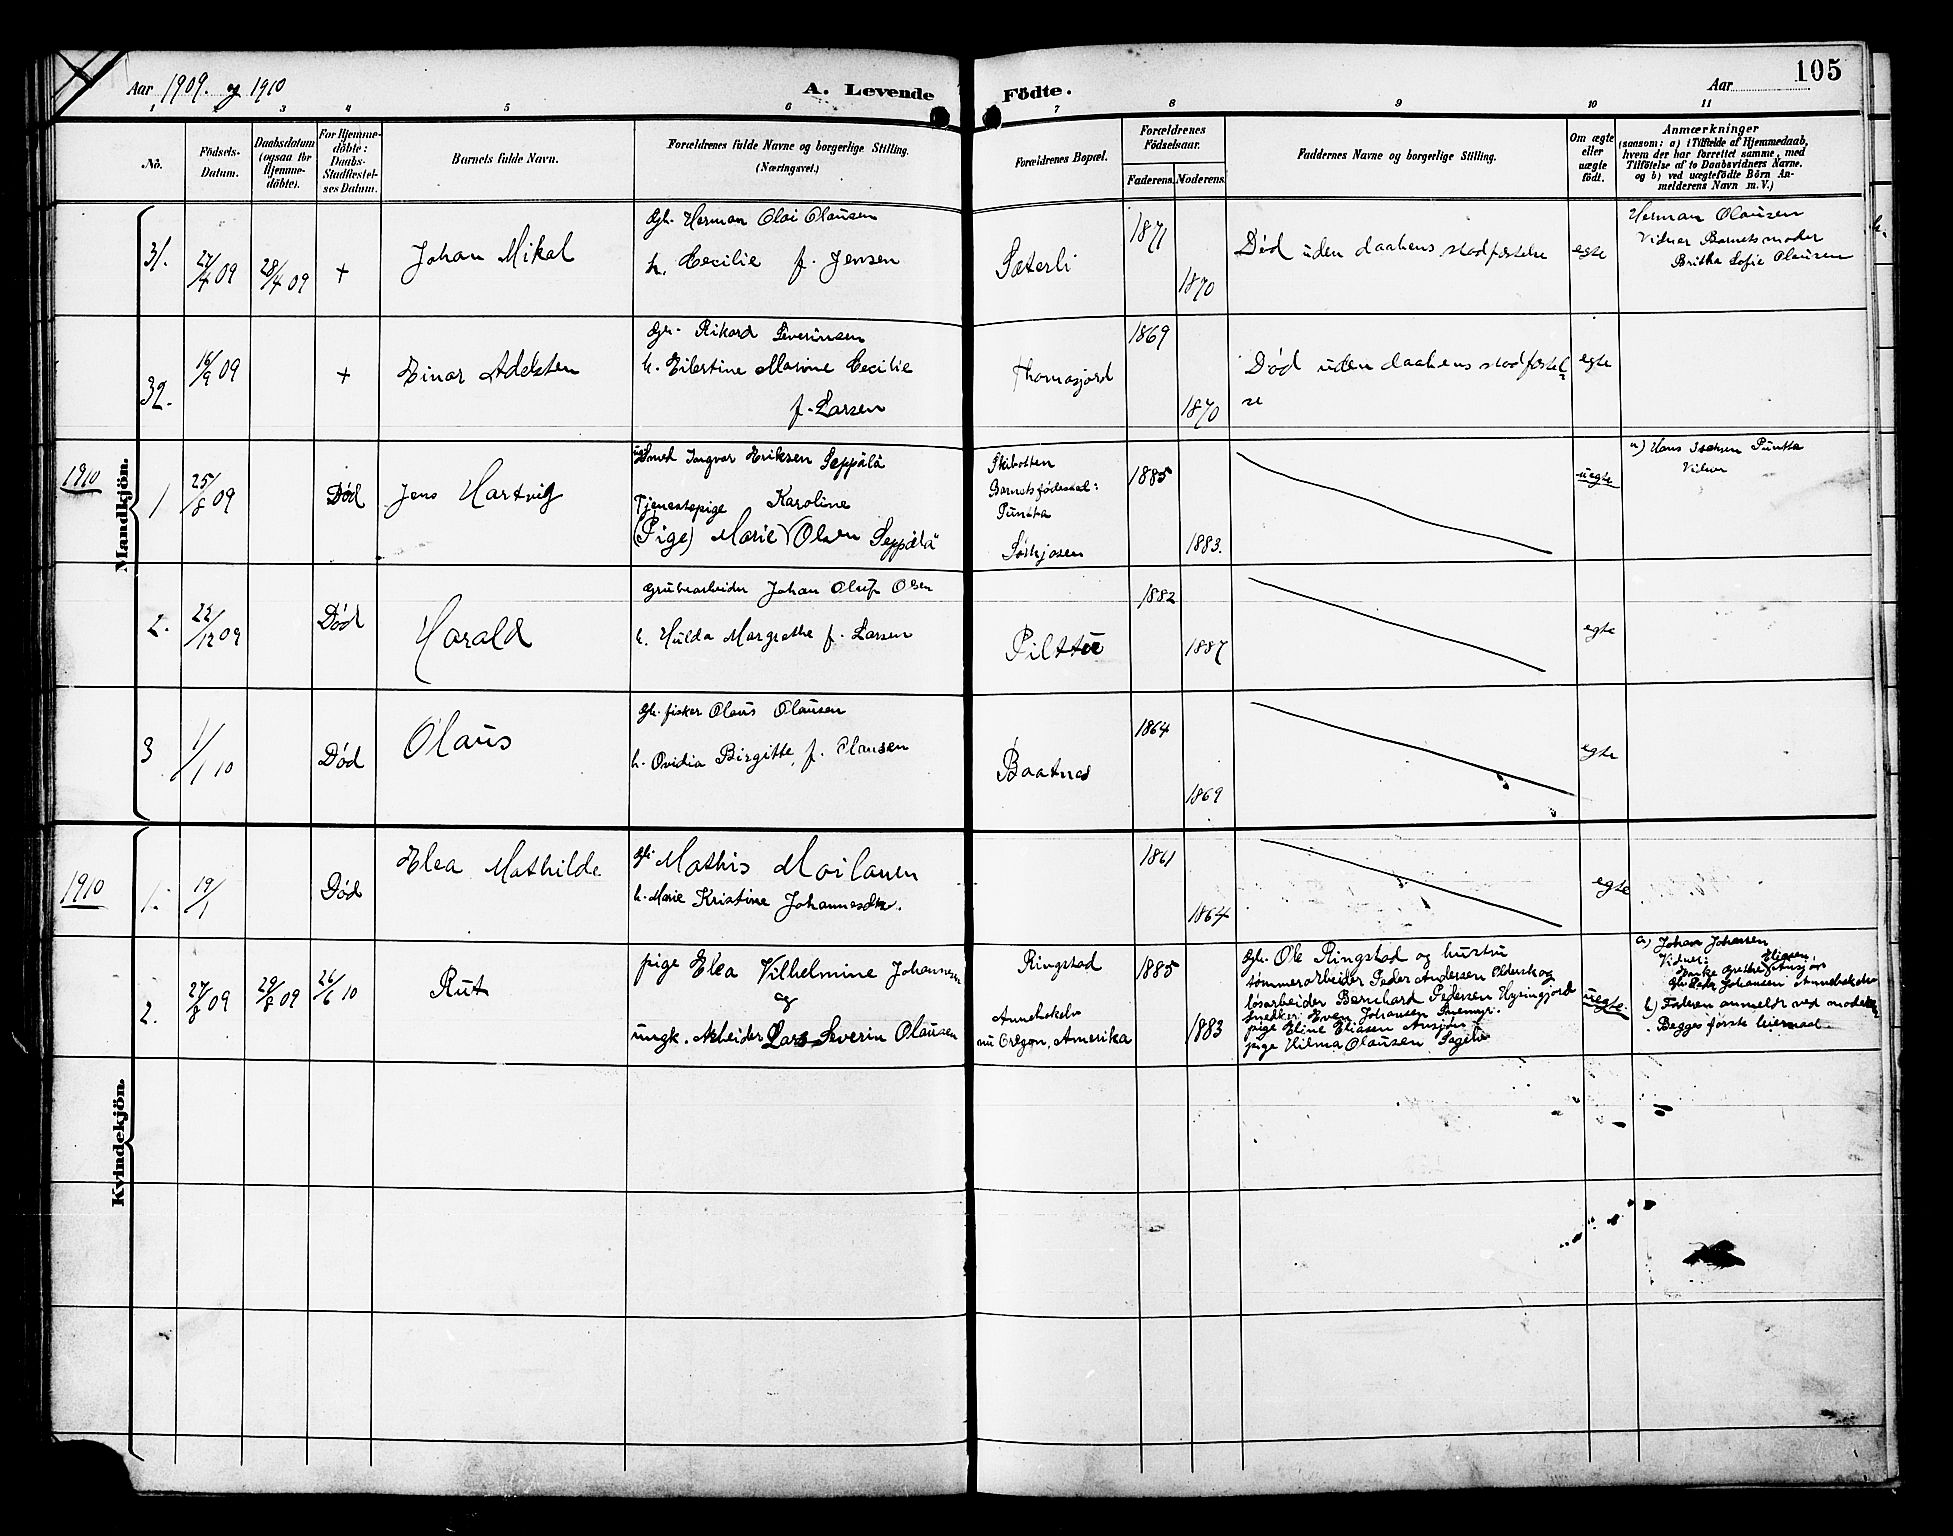 Aar 1909. og 1910
A. Levende Födte.
Aar
105
1 2 3 4 5 6 7 8 9 10 11
No.
Födsels-Datum.
Daabsdatum (ogsaa for Hjemme-döbte).
For Hjemme-döbte: Daabs-Stadfæstel-ses Datum.
Barnets fulde Navn.
Forældrenes fulde Navne og borgerlige Stilling. (Næringsvei.)
Forældrenes Bopæl.
Forældrenes Födselsaar.
Faderens. Moderens.
Faddernes Navne og borgerlige Stilling.
Om ægte eller uægte födt.
Anmærkninger
(saasom: a) i Tilfælde af Hjemmedaab,
hvem der har forrettet samme, med
Tilföielse af to Daabsvidners Navne.
og b) ved uægtefödte Börn An-
melderens Navn m. V.)
Mandkjön.
31.
27/4 09
28/4 09
+
Johan Mikal
Gh. Herman Olai Olausen
h. Cecilie f. Jensen
Sæterli
1871
1870
Død uden daabens stadfæstelse
egte
Herman Olausen
Vidner Barnets moder
Britha Sofie Olausen
32.
16/9 09
+
Einar Adelsten
Gh. Rikard Severinsen
h. Eilertine Marine Cecilie
f. Larsen
Thomasjord
1869
1870
Død uden daabens stadfæstel=
se
egte
1910
1
25/8 09
Død
Jens Hartvig
Smed Ingvar Eriksen Seppälä
Tjenestepige Karoline
(Pige) Marie Olsen Seppälä
Skibotten
Barnets fødested:
Puntta
Sørkjosen
1885
1883.
uegte
a) Hans Isaksen Puntta
Vidner
2.
22/12 09
Død
Harald
Grubearbeider Johan Oluf Olsen
h. Hulda Margrethe f. Larsen
Pilttü
1882
1887
egte
3
1/1 10
Død
Olaus
Gh. fisker Olaus Olausen
h. Ovidia Birgitte, f. Olausen
Baatnes
1864
1869
egte
Kvindekjön.
1910
1.
19/1
Død
Elea Mathilde
Gh. Mathis Moilanen
h. Marie Kristine Johannesdtr.
1861
1864
egte
2.
27/8 09
29/8 09
26/6 10
Rut
pige Elea Vilhelmine Johansen
og
ungk. Arbeider Lars Severin Olausen
Ringstad
nu Oregon, Amerika
1885
1883
Gh. Ole Ringstad og hustru
tømmerarbeider Peder Andersen Olderskog
løsarbeider Bernhard Pedersen
Snedker Even Johansen
pige Eline Eliasen
pige Hilma Olausen Sagelv
uegte.
a) Johan Johansen
Vidner: Eliasen,
Johansen
b) Faderen anmeldt ved moderen
Begges første leiermaal.